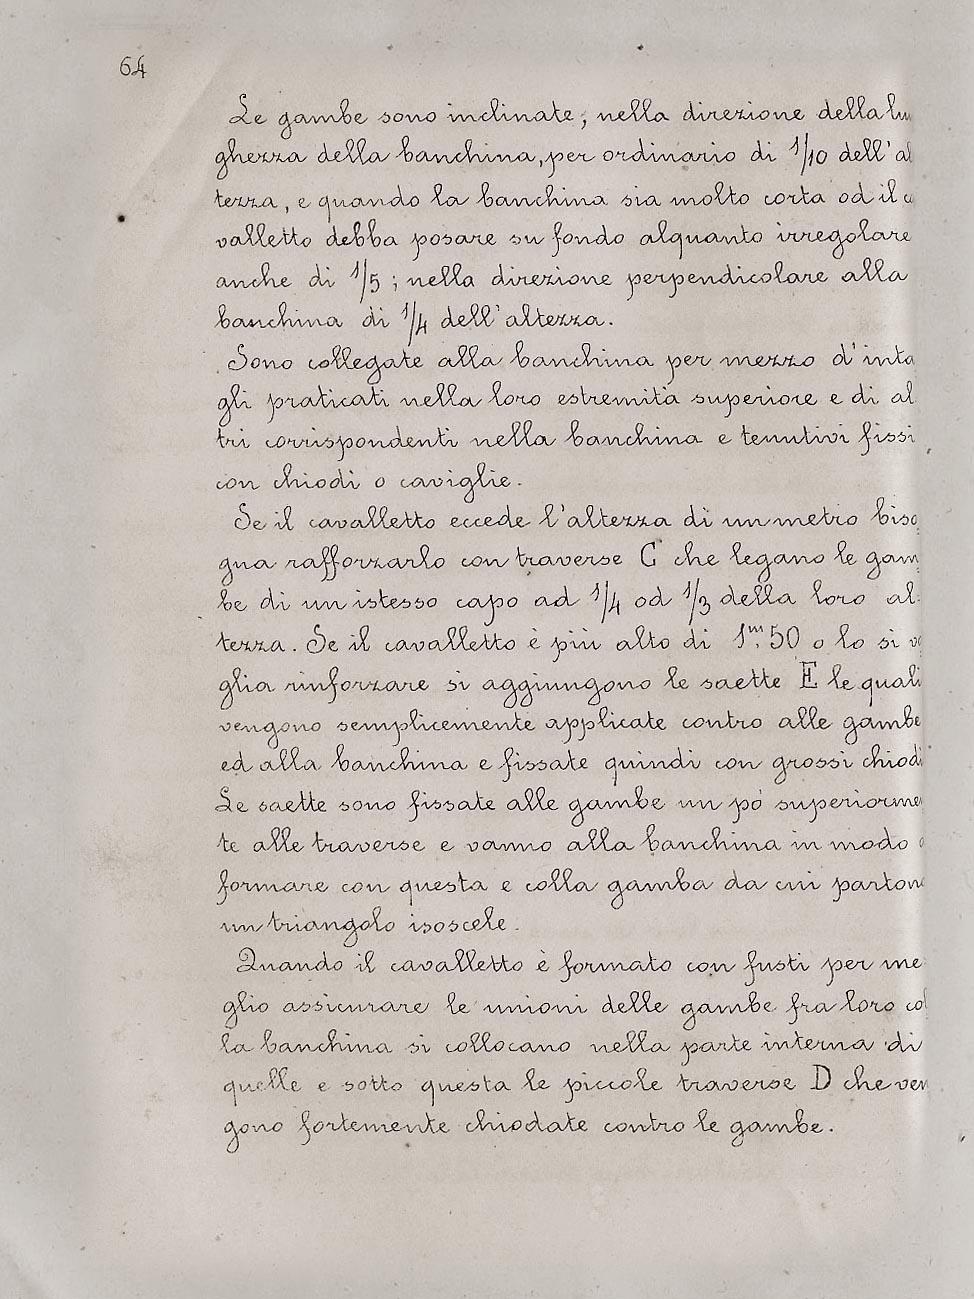 64
Le gambe sono inclinate, nella direzione della lun
ghezza della banchina, per ordinario di 1/10 dell'al
tezza, e quando la banchina sia molto corta od il ca
valletto debba posare su fondo alquanto irregolare
anche di 1/5; nella direzione perpendicolare alla
banchina di 1/4 dell'altezza.
Sono collegate alla banchina per mezzo d'inta
gli praticati nella loro estremità superiore e di al
tri corrispondenti nella banchina e tenutivi fissi
con chiodi o caviglie.
Se il cavalletto eccede l'altezza di un metro biso
gna rafforzarlo con traverse C che legano le gam
be di un istesso capo ad 1/4 od 1/3 della loro al
tezza. Se il cavalletto è più alto di 1m,50 o lo si vo
glia rinforzare si aggiungono le saette E le quali
vengono semplicemente applicate contro alle gambe
ed alla banchina e fissate quindi con grossi chiodi
Le saette sono fissate alle gambe un pò superiormen
te alle traverse e vanno alla banchina in modo a
formare con questa e colla gamba da cui partono
un triangolo isoscele.
Quando il cavalletto è formato con fusti per me
glio assicurare le unioni delle gambe fra loro col
la banchina si collocano nella parte interna di
quelle e sotto questa le piccole traverse D che ven
gono fortemente chiodate contro le gambe.